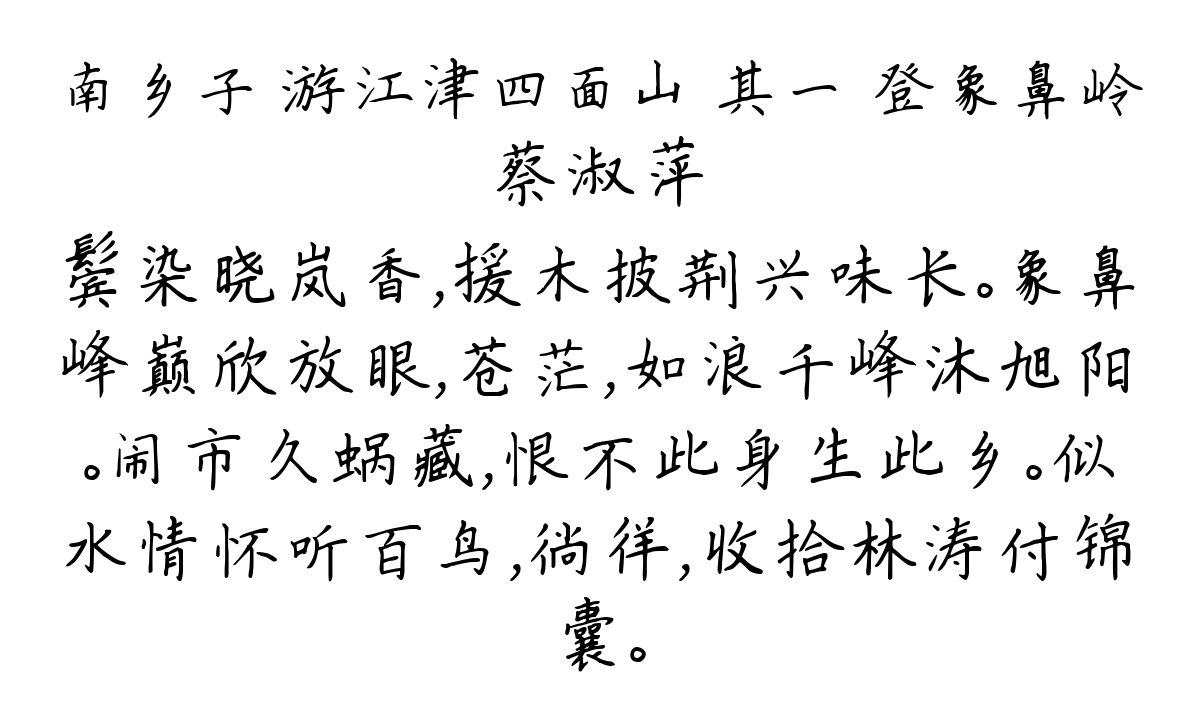 南乡子 游江津四面山 其一 登象鼻岭
蔡淑萍
鬓染晓岚香,援木披荆兴味长。象鼻
峰巅欣放眼,苍茫,如浪千峰沐旭阳
。闹市久蜗藏,恨不此身生此乡。似
水情怀听百鸟,徜徉,收拾林涛付锦
囊。